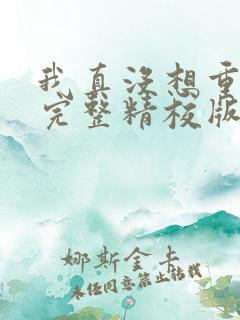 我真没想重
完整精校版
娜斯金卡
未经同意禁止转载